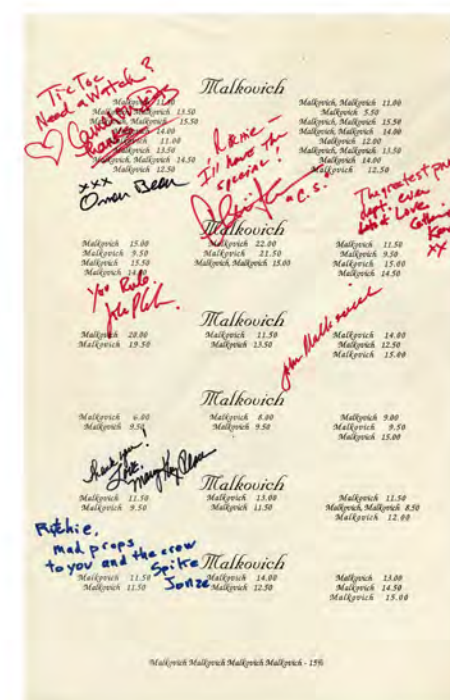 Tic Toc
Need a Watch?
Malkovich
Malkovich
Malkovich 13.50
Malkovich, Malkovich 15.50
14.00
11.00
13.50
Malkovich, Malkovich 14.50
12.50
Malkovich, Malkovich 11.00
Malkovich 5.50
Malkovich, Malkovich 15.50
Malkovich, Malkovich 14.00
Malkovich 12.00
Malkovich, Malkovich 13.50
Malkovich 14.00
12.50
xxx
Orson Bean
I'll have the
special!
"C.S.
The greatest
dept. ever
Love
XX
Malkovich
Malkovich 15.00
Malkovich 9.50
Malkovich 15.50
Malkovich 14.00
Malkovich 22.00
Malkovich 21.50
Malkovich, Malkovich 15.00
Malkovich 11.50
Malkovich 9.50
Malkovich 15.00
Malkovich 14.50
You Rule
John Malkovich
Malkovich
Malkovich 20.00
Malkovich 19.50
Malkovich 11.50
Malkovich 13.50
Malkovich 14.00
Malkovich 12.50
Malkovich 15.00
Malkovich
Malkovich 6.00
Malkovich 9.50
Malkovich 8.00
Malkovich 9.50
Malkovich 9.00
Malkovich 9.50
Malkovich 15.00
Thank you!
Love
Mary Kay Place
Malkovich
Malkovich 11.50
Malkovich 9.50
Malkovich 13.00
Malkovich 11.50
Malkovich 11.50
Malkovich, Malkovich 8.50
Malkovich 12.00
Ritchie,
mad props
to you and the crew
Spike
Jonze
Malkovich
Malkovich 11.50
Malkovich 11.50
Malkovich 14.00
Malkovich 12.50
Malkovich 13.00
Malkovich 14.50
Malkovich 15.00
Malkovich Malkovich Malkovich Malkovich - 15%